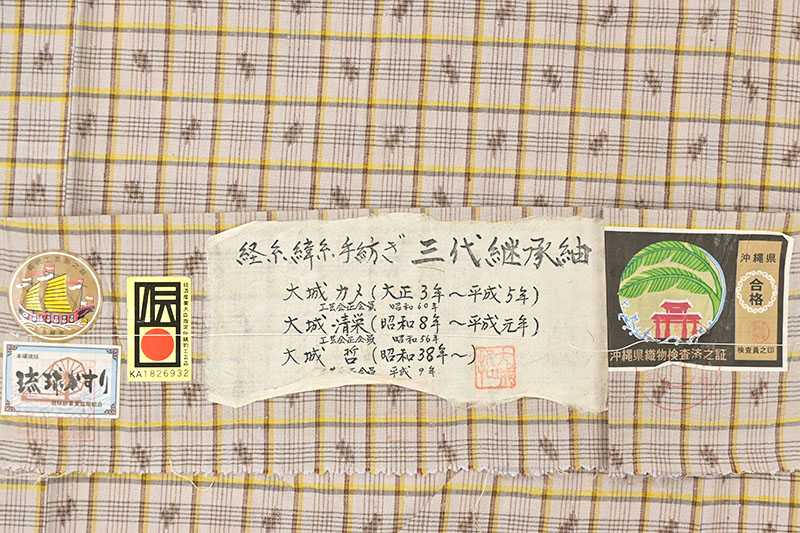 経糸緯糸手紡ぎ 三代継承紬
大城 カメ(大正3年~平成5年)
工芸会正会員 昭和60年
大城 清栄(昭和8年~平成元年)
工芸会正会員 昭和56年
大城 哲(昭和38年~)
工芸会正会員 平成9年
伝
経済産業大臣指定伝統的工芸品
KA1826932
本場琉球
琉球かすり
琉球絣事業協同組合
沖縄県
合格
検査員之印
沖縄県織物検査済之証